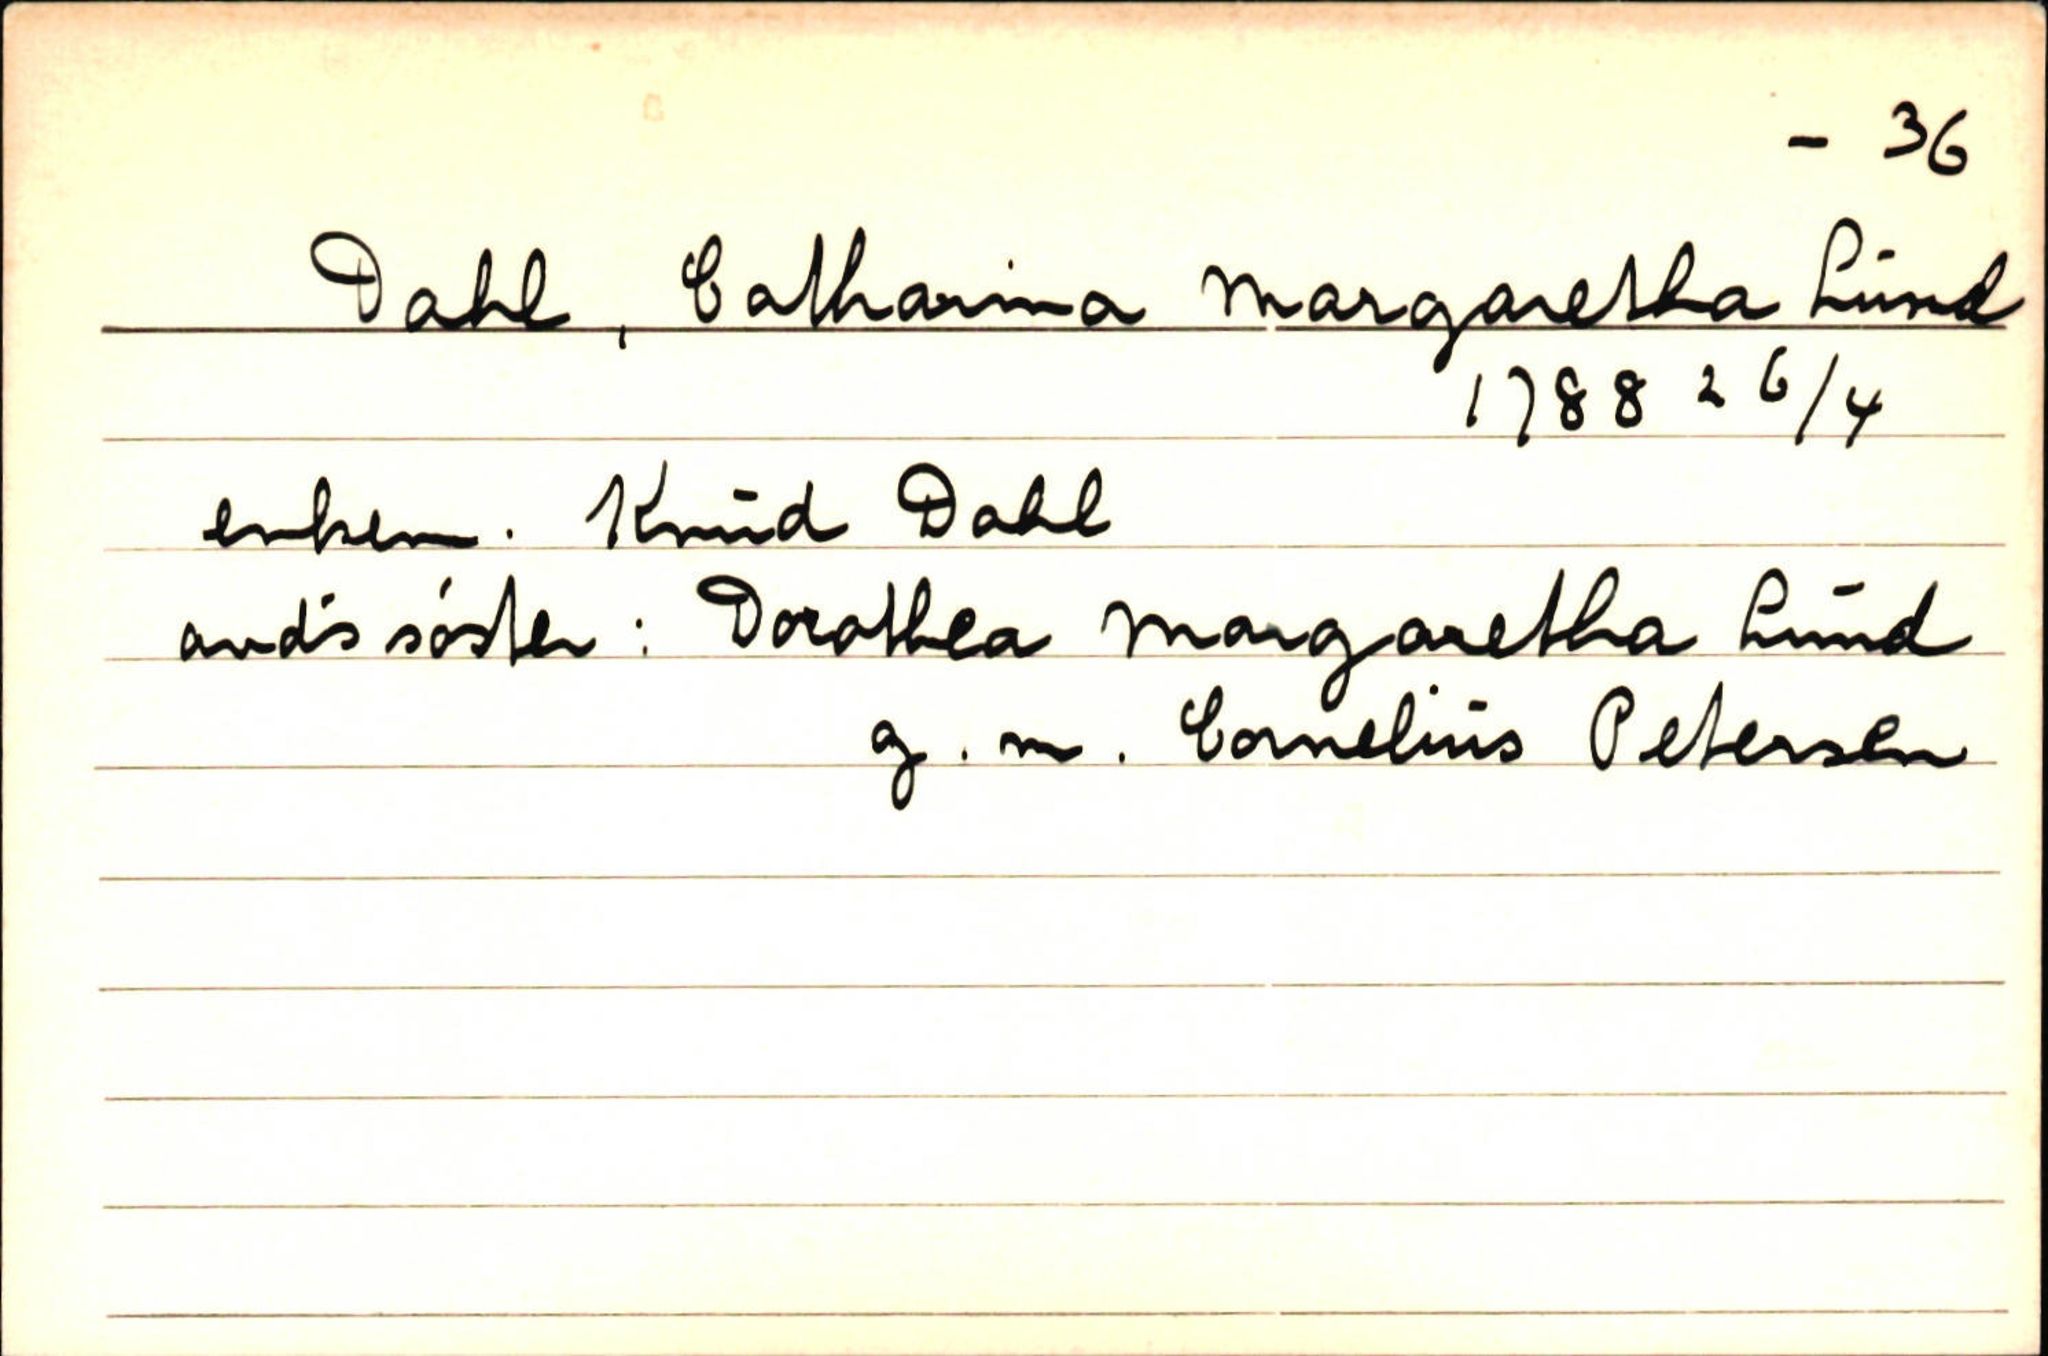 - 36
Dahl, Catharina Margaretha Lund
1788 26/4
enkem. Knud Dahl
avd's søster: Dorothea Margaretha Lund
g. m. Cornelius Petersen